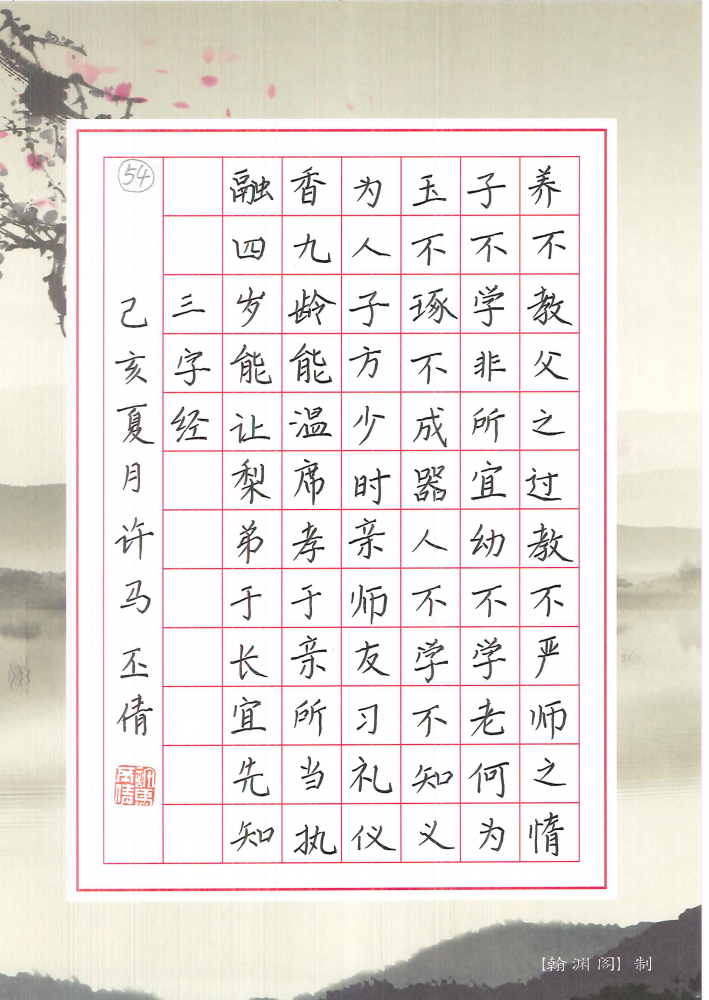 养不教父之过教不严师之惰
子不学非所宜幼不学老何为
玉不琢不成器人不学不知义
为人子方少时亲师友习礼仪
香九龄能温席孝于亲所当执
融四岁能让梨弟于长宜先知
三字经
己亥夏月许马丕倩
54
许马丕倩
【翰渊阁】制